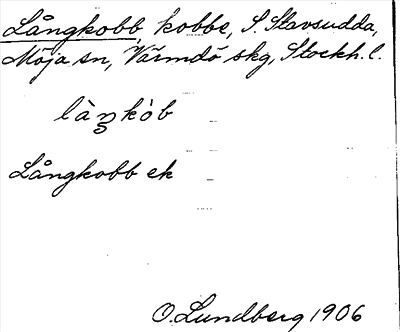 Långkobb, kobbe, S. Stavsudda,
Möja sn, Värmdö skg, Stockh. l.
là̀ŋkòb
Långkobb ek
O. Lundberg 1906